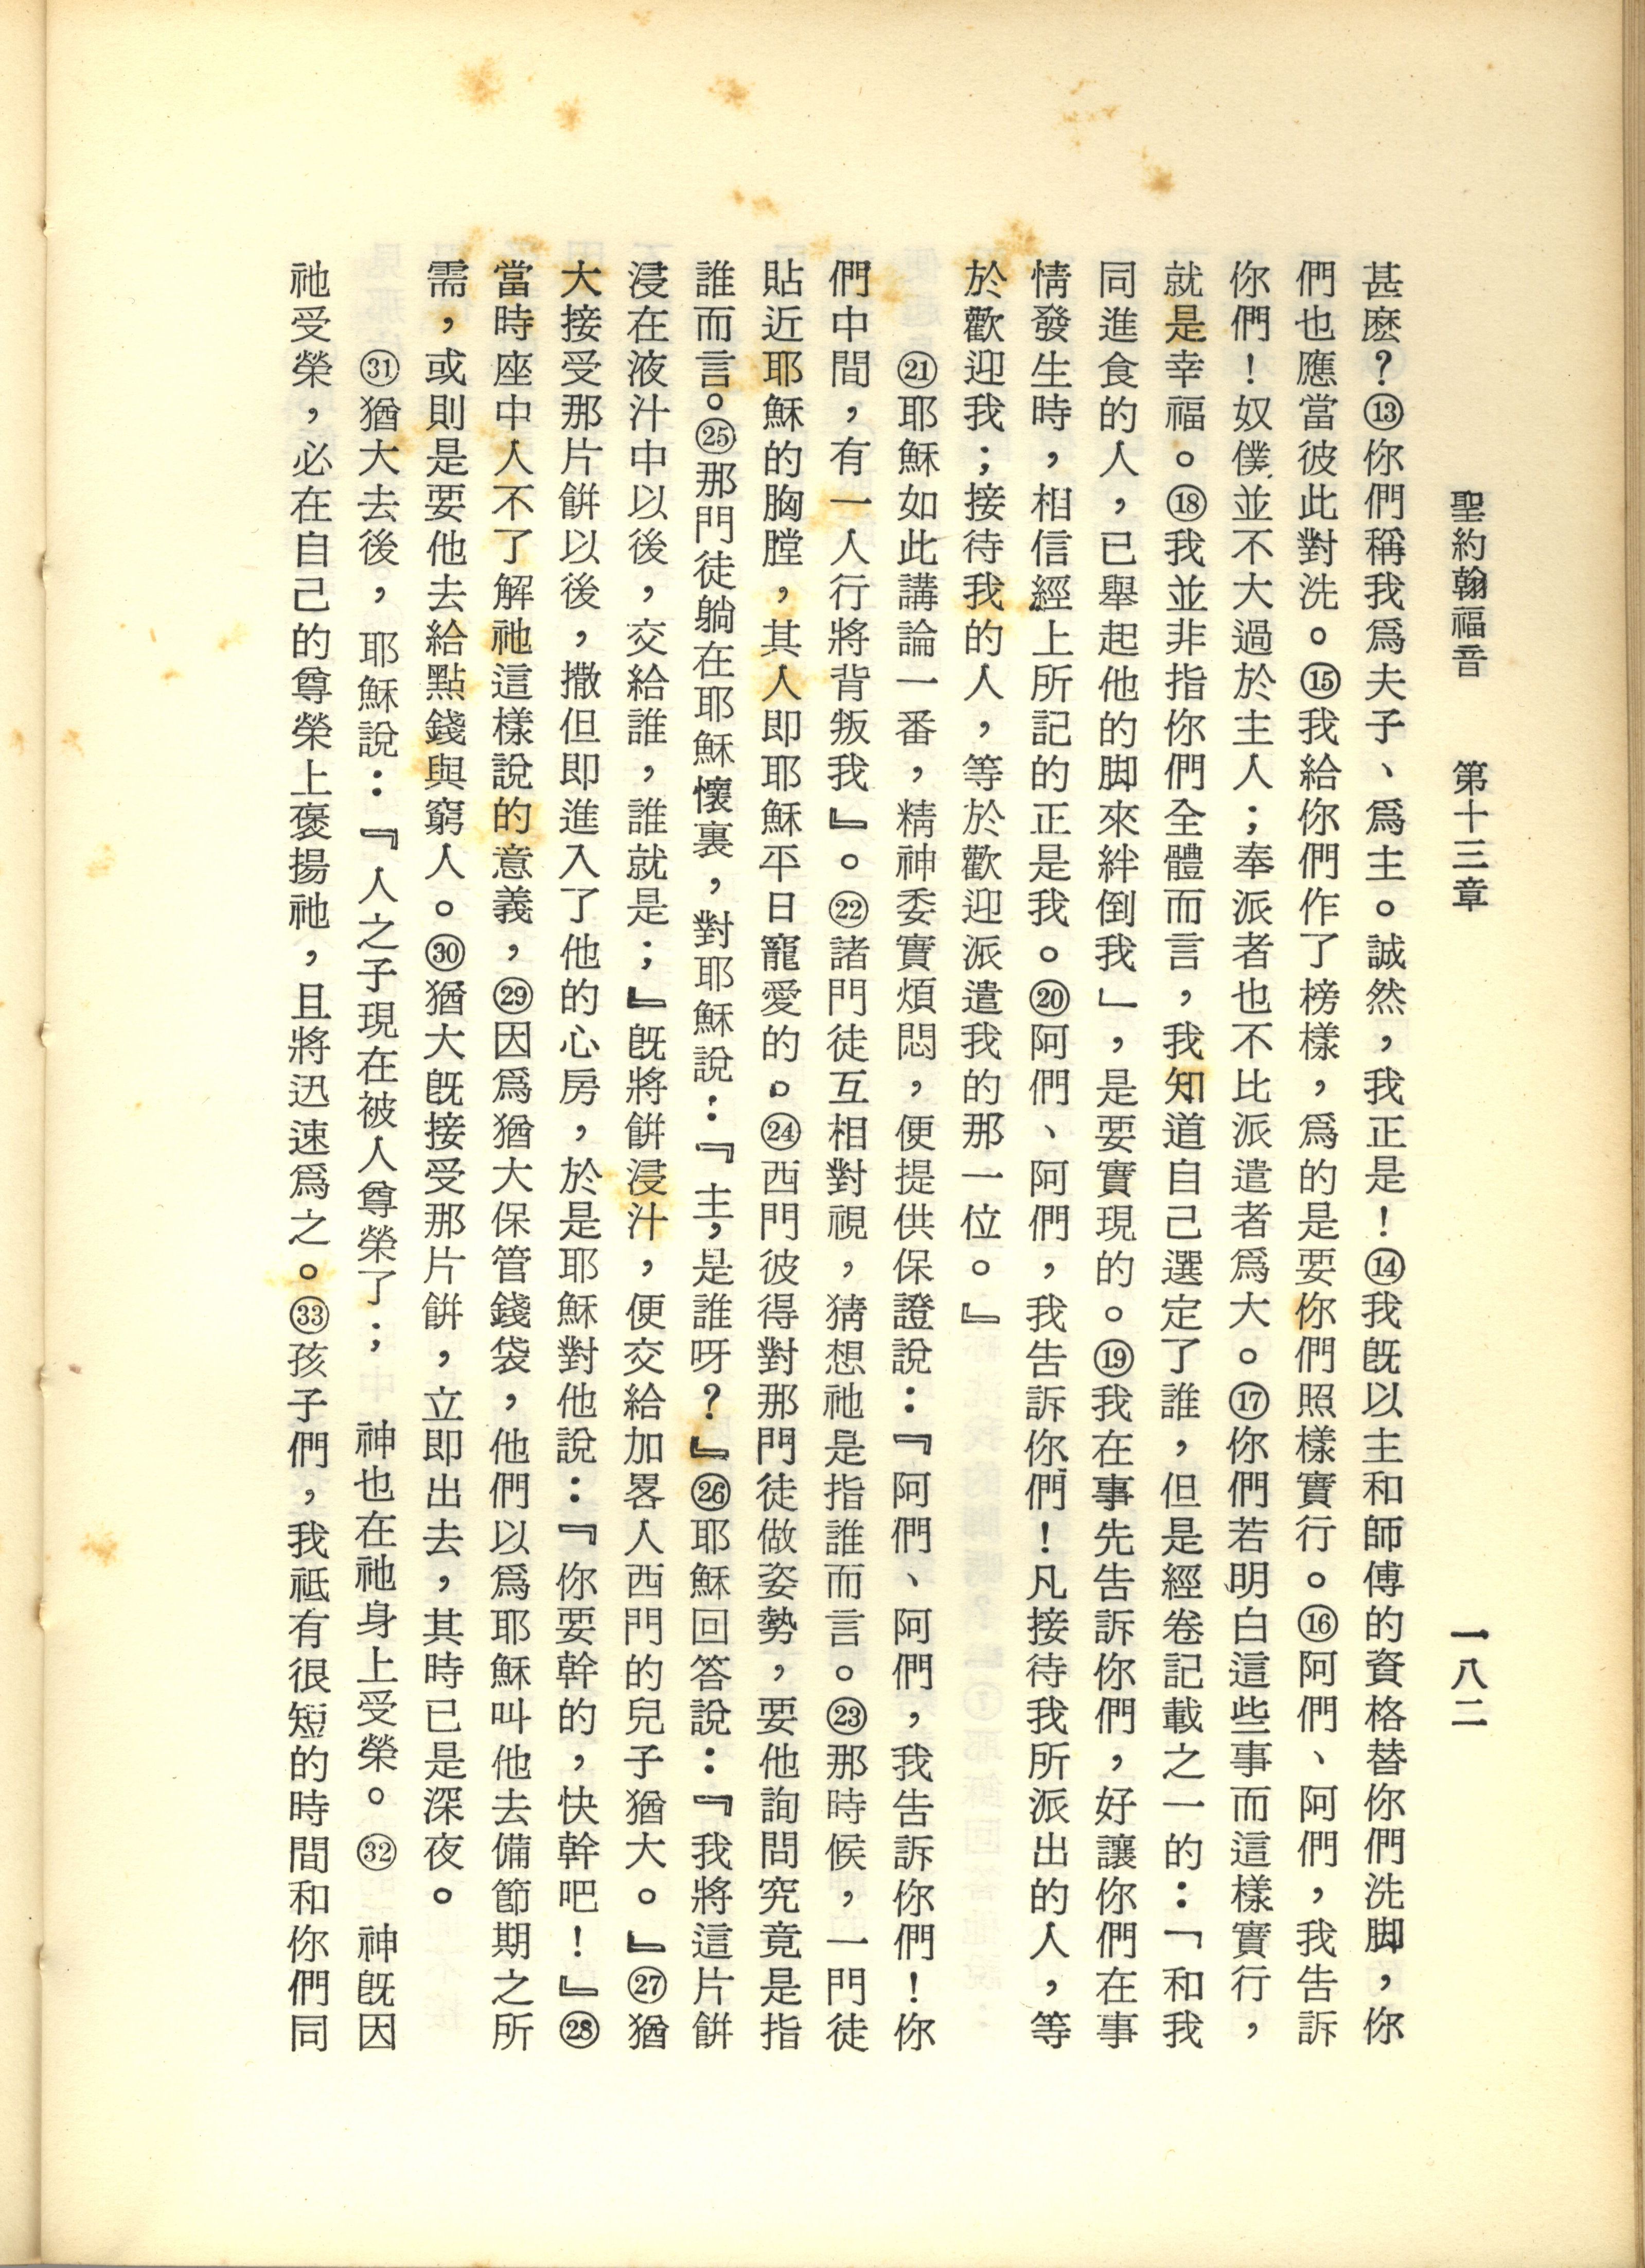 聖約翰福音　第十三章　一八二
甚麽？⑬你們稱我爲夫子、爲主。誠然，我正是！⑭我旣以主和師傅的資格替你們洗脚，你
們也應當彼此對洗。⑮我給你們作了榜樣，爲的是要你們照樣實行。⑯阿們、阿們，我告訴
你們！奴僕並不大過於主人；奉派者也不比派遣者爲大。⑰你們若明白這些事而這樣實行，
就是幸福。⑱我並非指你們全體而言，我知道自己選定了誰，但是經卷記載之一的：「和我
同進食的人，已舉起他的脚來絆倒我」，是要實現的。⑲我在事先告訴你們，好讓你們在事
情發生時，相信經上所記的正是我。⑳阿們、阿們，我告訴你們！凡接待我所派出的人，等
於歡迎我；接待我的人，等於歡迎派遣我的那一位。』
㉑耶穌如此講論一番，精神委實煩悶，便提供保證說：『阿們、阿們，我告訴你們！你
們中間，有一人行將背叛我』。㉒諸門徒互相對視，猜想祂是指誰而言。㉓那時候，一門徒
貼近耶穌的胸膛，其人即耶穌平日寵愛的。㉔西門彼得對那門徒做姿勢，要他詢問究竟是指
誰而言。㉕那門徒躺在耶穌懷裏，對耶穌說：『主，是誰呀？』㉖耶穌回答說：『我將這片餅
浸在液汁中以後，交給誰，誰就是；』旣將餅浸汁，便交給加畧人西門的兒子猶大。』㉗猶
大接受那片餅以後，撒但即進入了他的心房，於是耶穌對他說：『你要幹的，快幹吧！』㉘
當時座中人不了解祂這樣說的意義，㉙因爲猶大保管錢袋，他們以爲耶穌叫他去備節期之所
需，或則是要他去給點錢與窮人。㉚猶大旣接受那片餅，立即出去，其時已是深夜。
㉛猶大去後，耶穌說：『人之子現在被人尊榮了；　神也在祂身上受榮。㉜　神旣因
祂受榮，必在自己的尊榮上褒揚祂，且將迅速爲之。㉝孩子們，我祗有很短的時間和你們同